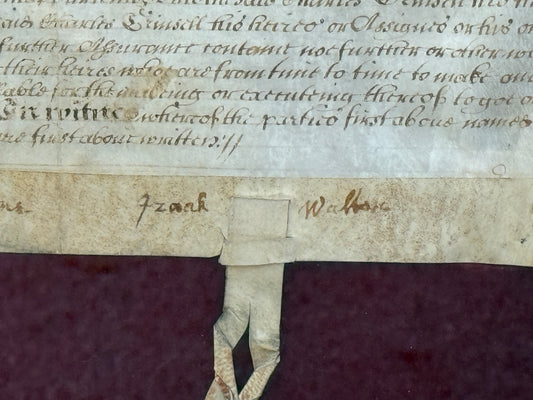 said Charles
said Charles Trinsell his heires or Assignes or his or
further Assurance containe noe further or other wa
their heires who are from time to time to make an
able for the makeing or executeing thereof to goe o
In witnes whereof the parties first above names
are first above written //
Izaak Walton